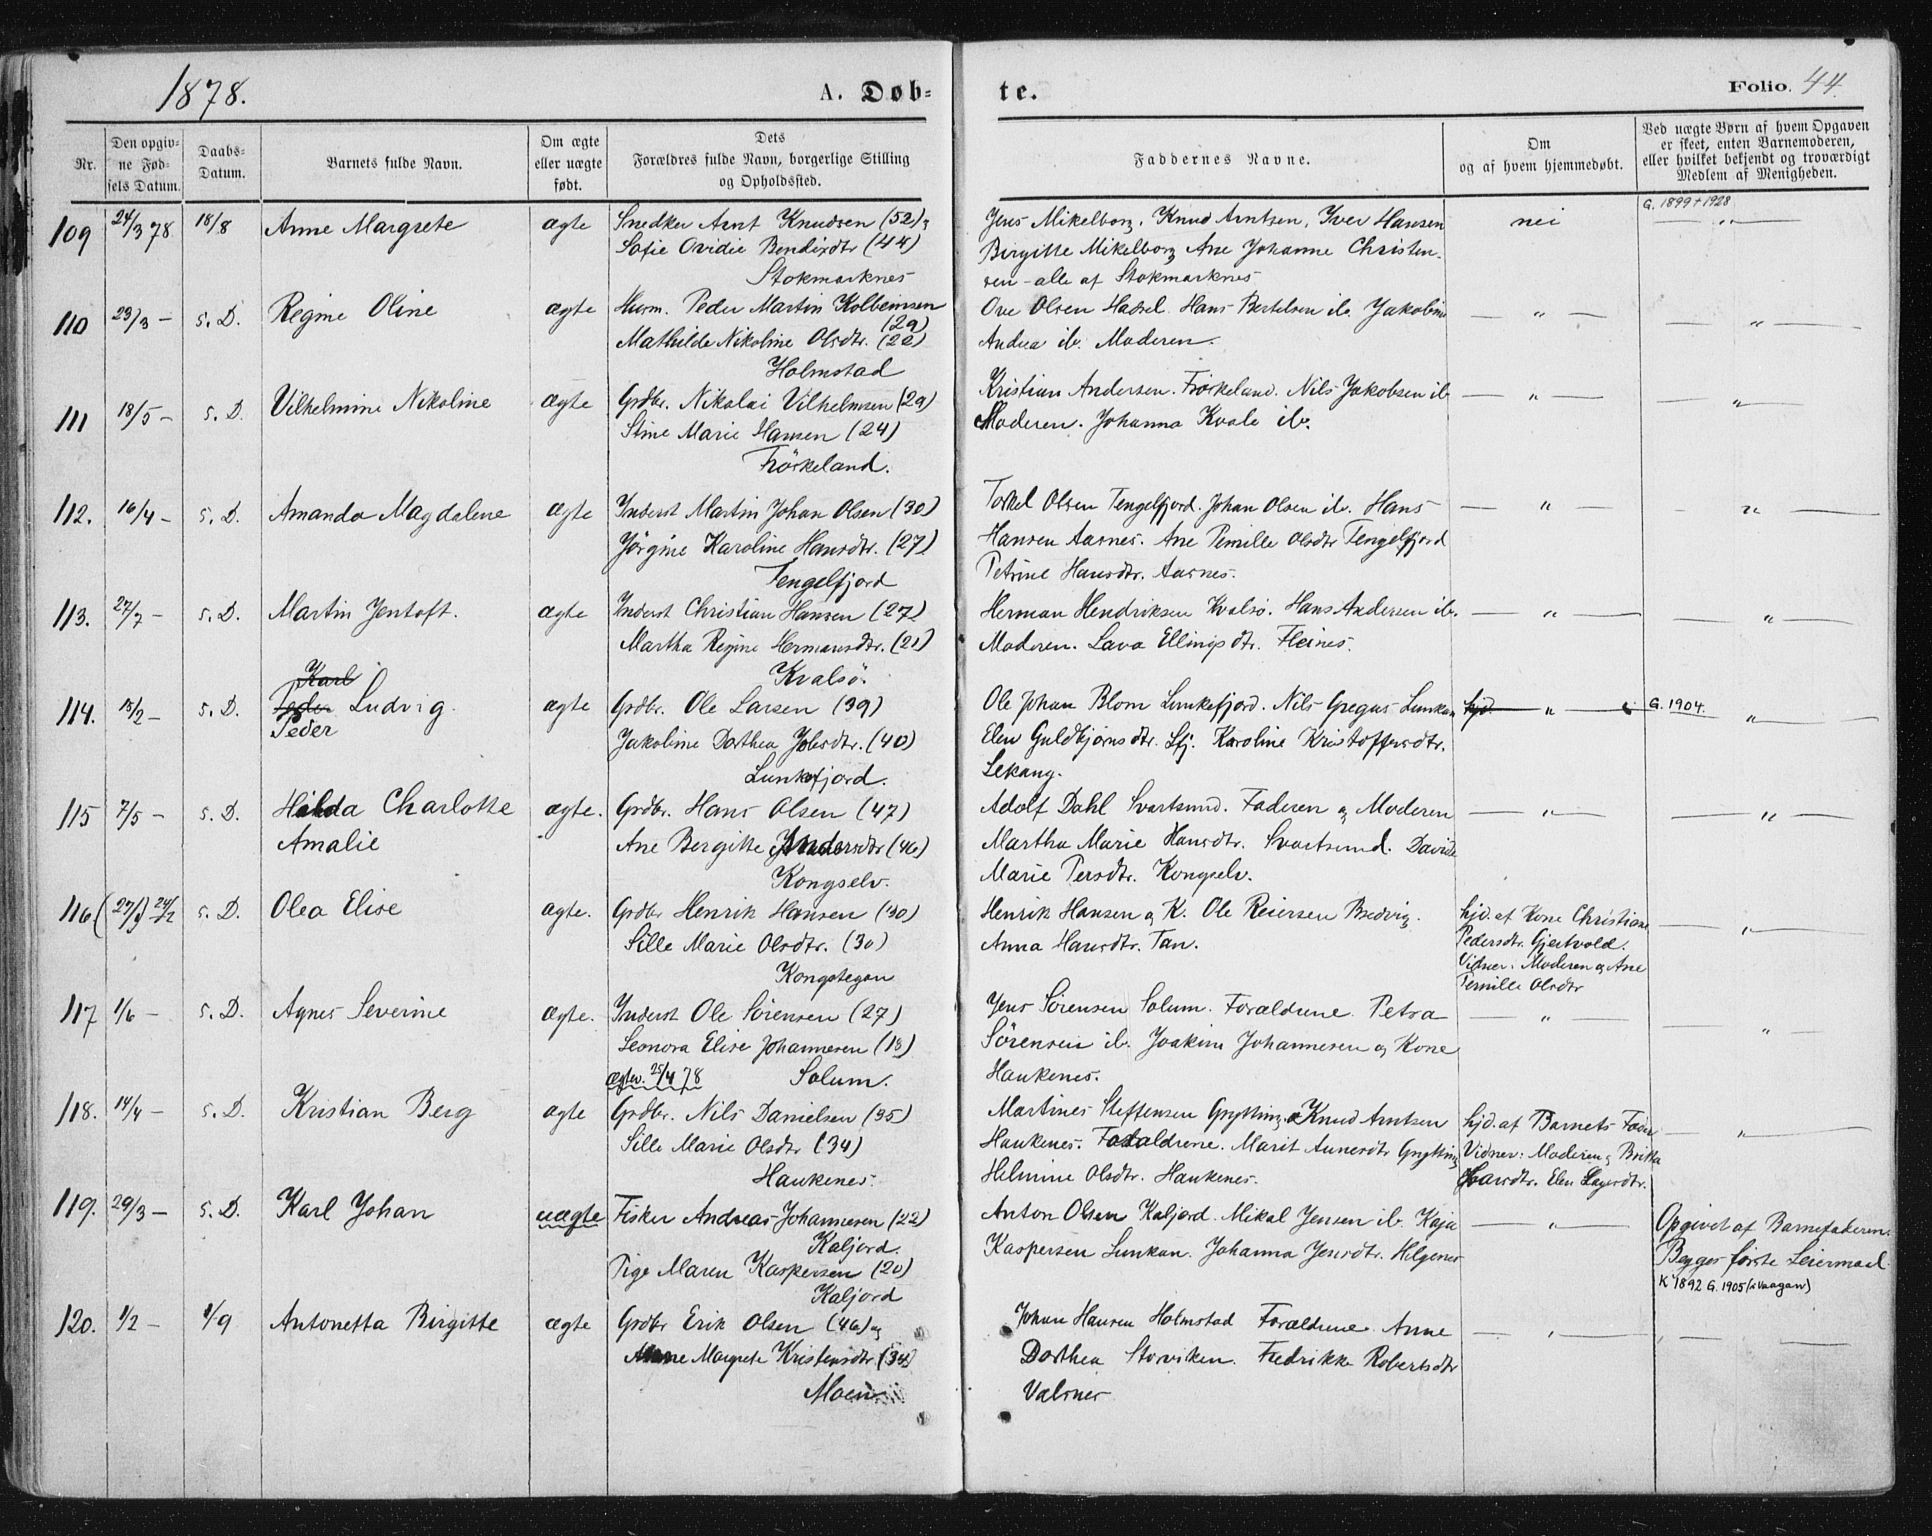 1878.
A. Døb-
te.
Folio. 44.
Nr.
Den opgiv-
ne Fød-
sels Datum.
Daabs-
Datum.
Barnets fulde Navn.
Om ægte
eller uægte
født.
Dets
Forældres fulde Navn, borgerlige Stilling
og Opholdssted.
Faddernes Navne.
Om
og af hvem hjemmedøbt.
Ved uægte Børn af hvem Opgaven
er skeet, enten Barnemoderen,
eller hvilket bekjendt og troværdigt
Medlem af Menigheden.
109 24/3 78 18/8 Anne Margrete ægte Snedker Arnt Knudsen (52) &
Sofie Ovidie Bendixdtr (44)
Stokmarknes
Jens Mikelborg. Knud Arntsen, Iver Hansen
Birgitte Mikelborg Ane Johanne Christen-
sen - alle af Stokmarknes
nei
G. 1899 + 1928
— " —
110 23/3 — s. D. Regine Oline ægte Huum. Peder Martin Kolbeinsen
(29)
Mathilde Nikoline Olsdtr. (22)
Holmstad
Ove Olsen Hadsel. Hans Bertelsen ib. Jakobine
Andrea ib. Moderen.
— " —
— " —
111 18/5 — s. D. Vilhelmine Nikoline ægte Grdbr. Nikolai Vilhelmsen (29)
Stine Marie Hansen (24)
Frörkeland.
Kristian Andersen. Frörkeland. Nils Jakobsen ib
Moderen. Johanna Kvale ib.
— " —
— " —
112. 16/4 — s. D. Amanda Magdalene ægte Inderst Martin Johan Olsen (30)
Jörgine Karoline Hansdtr. (27)
Tengelfjord
Torkel Olsen Tengelfjord. Johan Olsen ib. Hans
Hansen Aarnes. Ane Pernille Olsdtr Tengelfjord
Petrine Hansdtr. Aarnes.
— " —
— " —
113. 27/7 — s. D. Martin Jentoft. ægte Inderst Christian Hansen (27)
Martha Regine Hermansdtr. (21)
Kvalsö.
Herman Hendriksen Kvalsö. Hans Andersen ib.
Moderen. Lava Ellingsdtr. Fleines.
— " —
— " —
Karl
114. 15/2 — s. D. Peder Ludvig. ægte Grdbr. Ole Larsen (39)
Peder
Jakobine Dorthea Johsdtr. (40)
Lunkefjord.
Ole Johan Blom Lunkefjord. Nils Gregus Lunkan
Elen Guldbjørnsdtr. Lfj. Karoline Kristoffersdtr.
Lekang.
hjd. — " —
G. 1904. — " —
115 7/5 — s. D. Hilda Charlotte ægte. Grdbr. Hans Olsen (47)
Amalie
Ane Bergitte Andersdtr (46)
Kongselv.
Adolf Dahl Svartsund. Faderen og Moderen
Martha Marie Hansdtr. Svartsund. Davida
Marie Persdtr. Kongselv.
— " —
— " —
116 (27/3) 24/2 s. D. Olea Elise ægte. Grdbr Henrik Hansen (30)
Sille Marie Olsdtr. (30)
Kongstegan
Henrik Hansen og K. Ole Reiersen Bredvig.
Anna Hansdtr. Tan.
hjd. af Kone Christiane
Pedersdtr. Gjertvold.
Vidner: Moderen og Ane
Pernille Olsdtr
— " —
117 1/6 — s. D. Agnes Severine ægte. Inderst Ole Sörensen (27)
Leonora Elise Johannesen (18)
ægtev. 25/4 78 Solum.
Jens Sörensen Solum. Forældrene. Petra
Sörensen ib. Joakim Johannesen og Kone
Haukenes.
— " —
— " —
118. 14/4 — s. D. Kristian Berg ægte Grdbr. Nils Danielsen (35)
Sille Marie Olsdtr (34)
Haukenes.
Martines Steffensen Grytting & Knud Arntsen
Haukenes. Forældrene. Marit Aunesdtr Grytting
Helmine Olsdtr. Haukenes.
hjd. af Barnets Fader
Vidner: Moderen og Britta
Ivarsdtr. Elen
— " —
119. 29/3 — s. D. Karl Johan uægte Fisker Andreas Johannesen (22)
Kaljord.
Pige Maren Kaspersen (20)
Kaljord
Anton Olsen Kaljord. Mikal Jensen ib. Kaja
Kaspersen Lunkan. Johanna Jensdtr. Helgenes
— " —
Opgivet af Barnefaderen.
Begges förste Leiermaal
K 1892 G. 1905 (i Vaagan)
120. 1/2 — 1/9 Antonetta Birgitte ægte Grdbr Erik Olsen (46) og
Anne Margrete Kristensdtr (34)
Moen
Johan Hansen Holmstad Forældrene. Anne
Dorthea Storviken. Fredrikke Robertsdtr
Valsnes
— " —
— " —